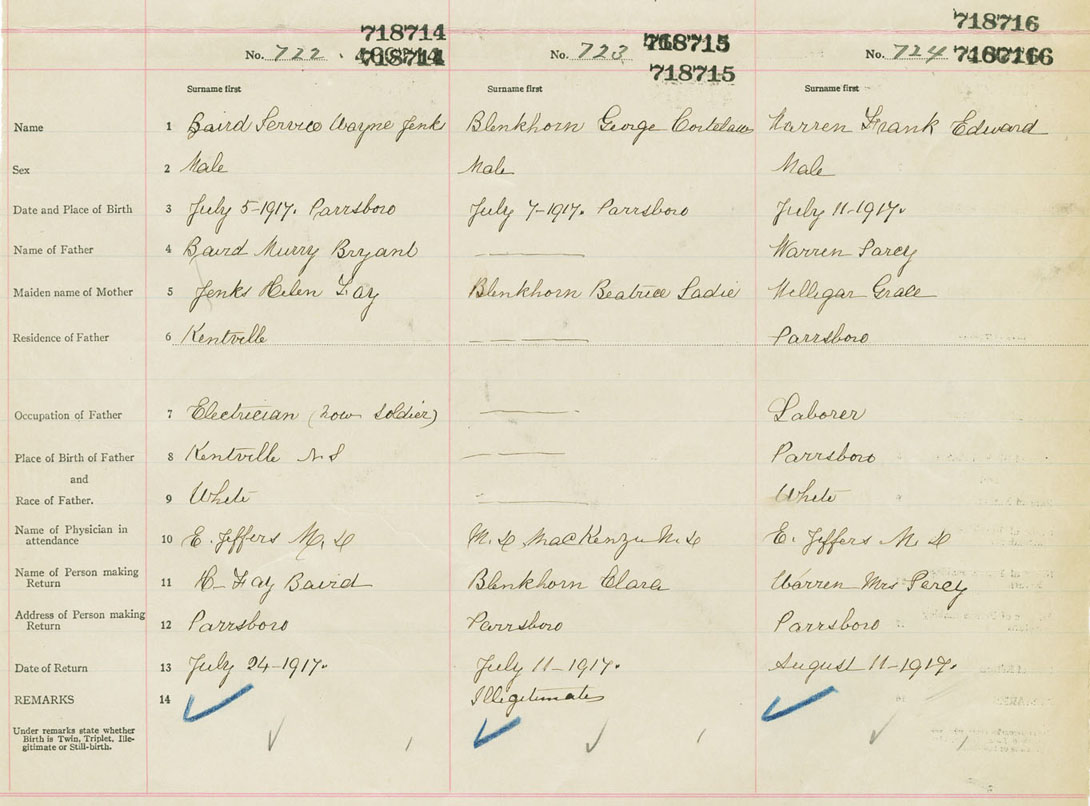 718714 718716
718715
No. 722 . 718714 No. 723 718715 No. 724 718716
Surname first Surname first Surname first
Name 1 Baird Service Wayne Jenk Blenkhorn George Warren Frank Edward
Sex 2 Male Male Male
Date and Place of Birth 3 July 5-1917. Parrsboro July 7-1917. Parrsboro July 11-1917.
Name of Father 4 Baird Murry Bryant —— Warren Percy
Maiden name of Mother 5 Jenks Helen Fay Blenkhorn Beatrice Sadie Grace
Residence of Father 6 Kentville — — —— Parrsboro
Occupation of Father 7 Electrician (now soldier) —— Laborer
Place of Birth of Father 8 Kentville N S — —— Parrsboro
and
Race of Father. 9 White —— White
Name of Physician in
attendance 10 E. Jeffers M. D M. D MacKenzie M. D E. Jeffers M. D
Name of Person making
Return 11 H. Fay Baird Blenkhorn Clara Warren Mrs Percy
Address of Person making
Return 12 Parrsboro Parrsboro Parrsboro
Date of Return 13 July 24-1917. July 11-1917. August 11-1917.
REMARKS 14 Illegitimate
Under remarks state whether
Birth is Twin, Triplet, Ille-
gitimate or Still-birth.